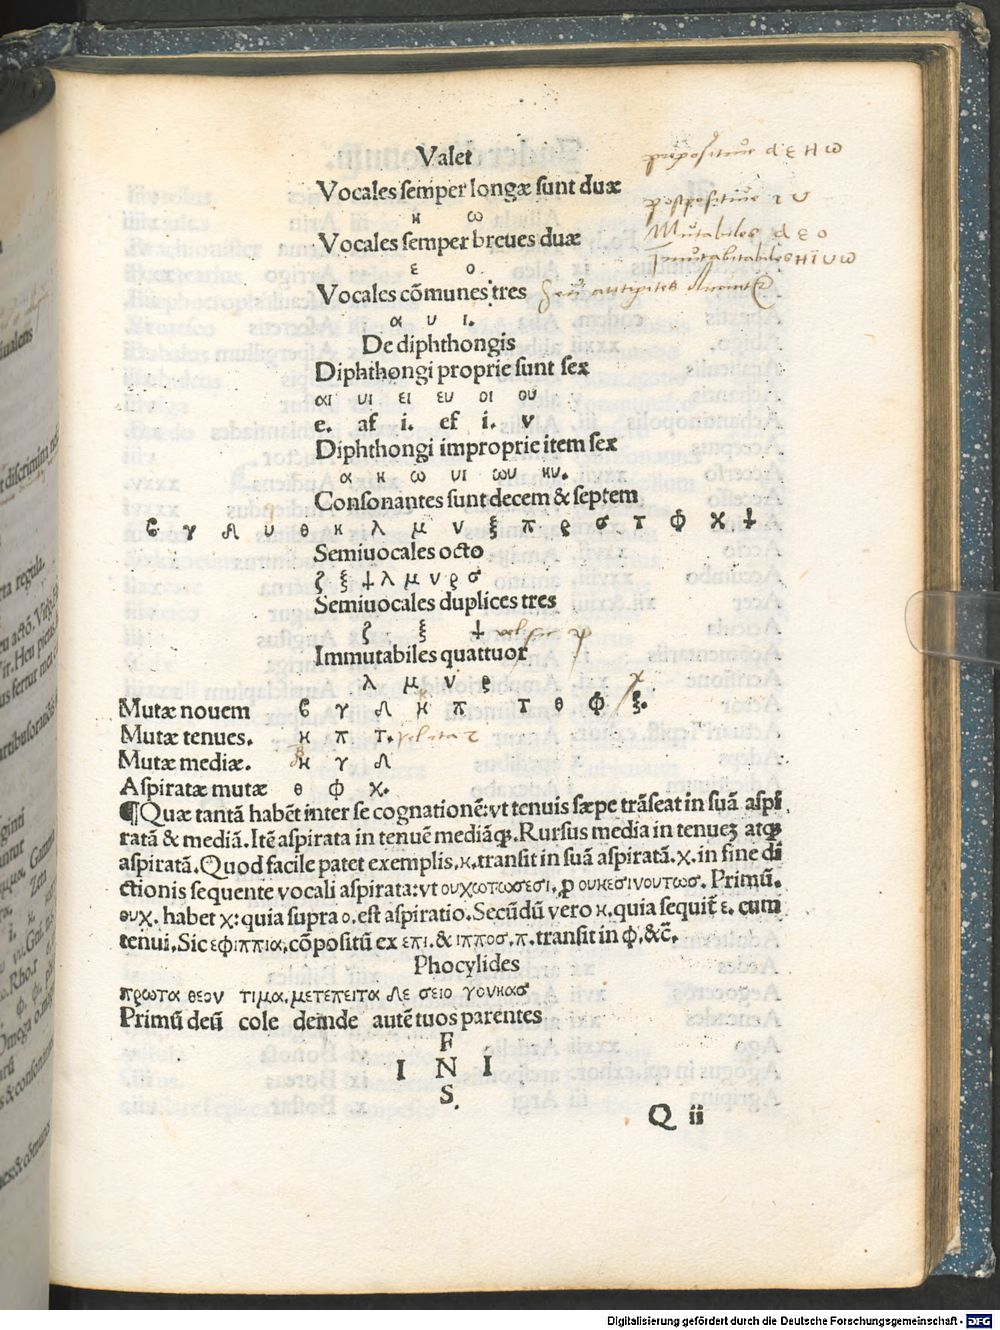 Valet
Vocales semper longæ sunt duæ
η ω
Vocales semper breues duæ
ε ο
Vocales cōmunes tres
α υ ι.
De diphthongis
Diphthongi proprie sunt sex
αι υι ει ευ οι ου
e. af i. ef i. v
Diphthongi improprie item sex
α η ω υι ωυ ηυ.
Consonantes sunt decem & septem
θ κ λ μ ν ξ π ρ σ τ φ χ ψ
Semiuocales octo
ζ ξ ψ λ μ ν ρ σ
Semiuocales duplices tres
ζ ξ ψ
Immutabiles quattuor
λ μ ν ρ
Mutæ nouem β γ δ κ π τ θ φ ξ.
Mutæ tenues. κ π τ.
Mutæ mediæ. κ γ δ
Aspiratæ mutæ θ φ χ.
¶Quæ tantā habēt inter se cognationē: vt tenuis sæpe trāseat in suā aspi
ratā & mediā. Itē aspirata in tenuē mediāqꝫ. Rursus media in tenueꝫ atqꝫ
aspiratā. Quod facile patet exemplis. κ. transit in suā aspiratā. χ. in fine di
ctionis sequente vocali aspirata: vt ουχωτωσεσι. ꝓ ουκεσινουτωσ. Primū.
ουχ. habet χ: quia supra ο. est aspiratio. Secūdū vero κ. quia sequit̄ ε. cum
tenui. Sic εφιππια, cōpositū ex επι. & ιπποσ. π. transit in φ. &c̄.
Phocylides
πρωτα θεον τιμα, μετεπειτα δε σειο γονηασ
Primū deū cole deinde autē tuos parentes
F
I N I
S.
Q ii
propositiue α ε η ω
postpositiue ι υ
Mutabiles α ε ο
Immutabitabiles η ι υ ω
χ
Digitalisierung gefördert durch die Deutsche Forschungsgemeinschaft - DFG